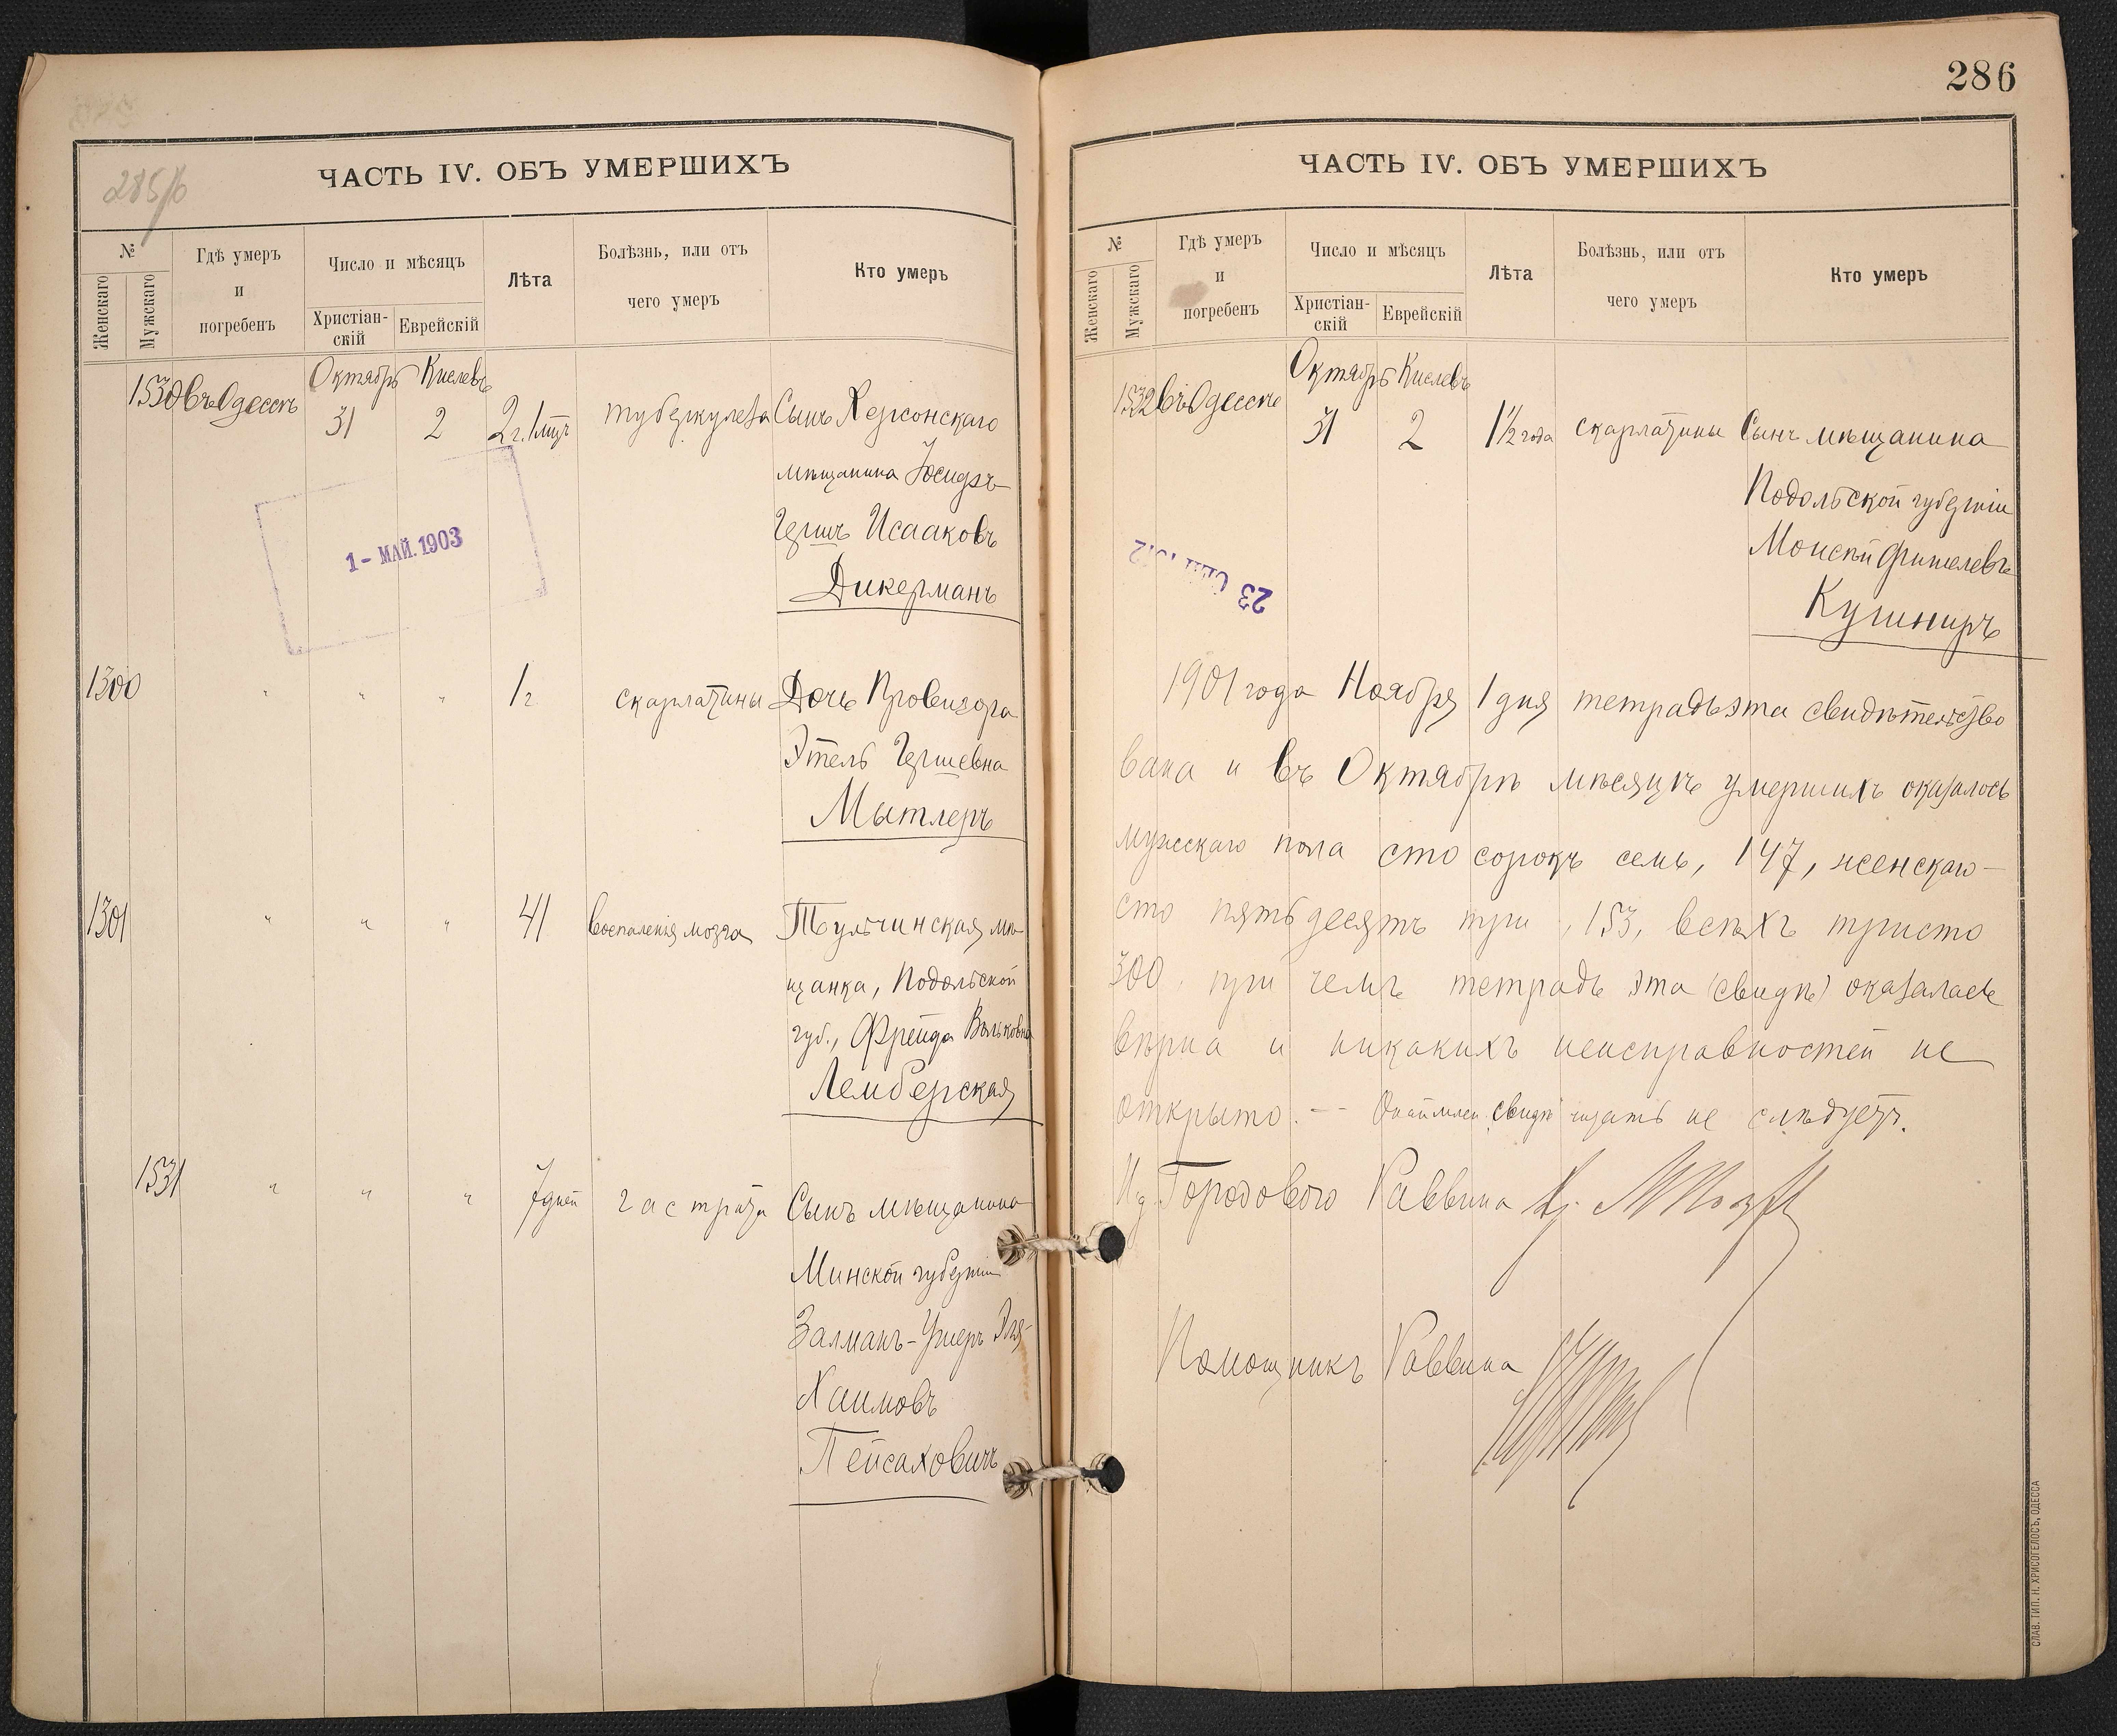 285/б
ЧАСТЬ IV. ОБЪ УМЕРШИХЪ
№
Женскаго
Мужскаго
Гдѣ умеръ
и
погребенъ
Число и мѣсяцъ
Христіан-
скій
Еврейскій
Лѣта
Болѣзнь, или отъ
чего умеръ
Кто умеръ
Октябрь Кислевъ
1530 въ Одессѣ 31 2 2 г. 1 мцъ туберкулеза Сынъ Херсонскаго
мѣщанина Іосифъ-
Гершъ Исааковъ
Дикерманъ
1 - МАЙ. 1903
1300 " " " 1 г скарлатины Дочь Провизора
Этель Гершевна
Мытлеръ
1301 " " " 41 воспаленія мозга Тульчинская мѣ-
щанка, Подольской
губ., Фрейда Вольковна
Лемберская
1531 " " " 7 дней гастрита Сынъ мѣщанина
Минской губерніи
Залманъ-Ушеръ Эля-
Хаимовъ
Пейсаховичъ
286
ЧАСТЬ IV. ОБЪ УМЕРШИХЪ
№
Женскаго
Мужскаго
Гдѣ умеръ
и
погребенъ
Число и мѣсяцъ
Христіан-
скій
Еврейскій
Лѣта
Болѣзнь, или отъ
чего умеръ
Кто умеръ
Октябрь Кислевъ
1532 въ Одессѣ 31 2 1½ года скарлатины Сынъ мѣщанина
Подольской губерніи
Моисей Фишелевъ
Кушниръ
23
1901 года Ноября 1 дня тетрадь эта свидѣтельство
вана и въ Октябрѣ мѣсяцѣ умершихъ оказалось
мужскаго пола сто сорокъ семь, 147, женскаго -
сто пятьдесятъ три, 153, всѣхъ триста
300, при чемъ тетрадь эта (свидѣ) оказалась
вѣрна и никакихъ неисправностей не
открыто. - свидѣ читать не слѣдуетъ.
И. д. Городового Раввина
Помощникъ Раввина
СЛАВ. ТИП. Н. ХРИСОГЕЛОСЪ, ОДЕССА